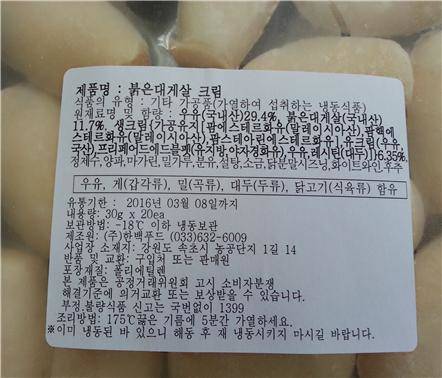 제품명 : 붉은대게살 크림
식품의 유형 : 기타 가공품(가열하여 섭취하는 냉동식품)
원재료명 및 함량 : 우유(국내산)29.4%, 붉은대게살(국내산)
11.7%, 생크림{가공유지[팜에스테르화유(말레이시아산),팜핵에
스테르화유(말레이시아산),팜스테아린에스테르화유],유크림(우유,
국산),프리페어드에드블펫(유지방,야자경화유,우유,레시틴(대두)}6.35%,
정제수,양파,마가린,밀가루,분유,설탕,소금,닭분말,치즈냉,화이트와인,후추
우유, 게(갑각류), 밀(곡류), 대두(두류), 닭고기(식육류) 함유
유통기한 : 2016년 03월 08일까지
내용량: 30g x 20ea
보관방법: -18℃ 이하 냉동보관
제조원: (주)한백푸드 (033)632-6009
사업장 소재지: 강원도 속초시 농공단지 1길 14
반품 및 교환: 구입처 또는 판매원
포장재질: 폴리에틸렌
본 제품은 공정거래위원회 고시 소비자분쟁
해결기준에 의거교환 또는 보상받을 수 있습니다.
부정.불량식품 신고는 국번없이 1399
조리방법: 175℃끓은 기름에 5분간 가열하세요.
※이미 냉동된 바 있으니 해동 후 재 냉동시키지 마시길 바랍니다.